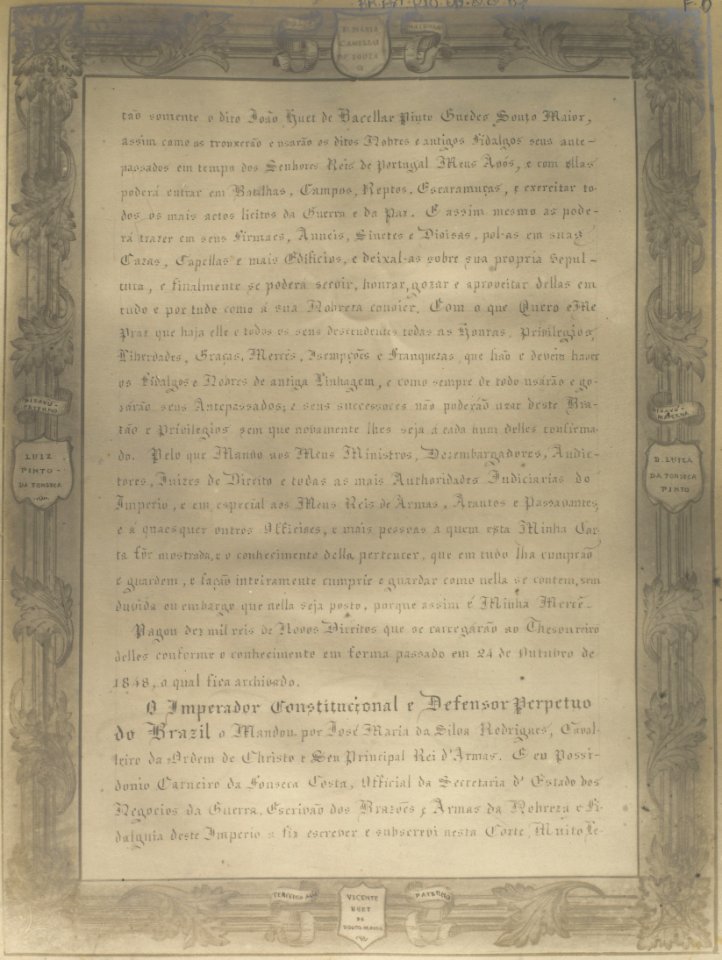 D. MARIA
CAMELLO
DE SOUZA
tão somente o dito João Huet de Bacellar Pinto Guedes Souto Maior,
assim como os trouxerão e usarão os ditos Nobres e antigos Fidalgos seus ante-
passados em tempo dos Senhores Reis de Portugal Meus Avós, e com ellas
poderá entrar em Batalhas, Campos, Reptos, Escaramuças, e exercitar to-
dos os mais actos licitos da Guerra e da Paz. E assim mesmo as pode-
rá trazer em seus Firmaes, Anneis, Sinetes e Divisas, pol-as em suas
Cazas, Capellas e mais Edificios, e deixal-as sobre sua propria Sepul-
tura, e finalmente se poderá servir, honrar, gozar e aproveitar dellas em
tudo e por tudo como á sua Nobreza convier. Com o que Quero e Me
Praz que haja elle e todos os seus descendentes todas as Honras, Privilegios,
Liberdades, Graças, Mercês, Isempções e Franquezas, que hão e devem haver
os Fidalgos e Nobres de antiga Linhagem, e como sempre de todo usarão e go-
zarão seus Antepassados; e seus successores não poderão uzar deste Bra-
zão e Privilegios sem que novamente lhes seja a cada hum delles confirma-
do. Pelo que Mando aos Meus Ministros, Dezembargadores, Audic-
tores, Juizes de Direito e todas as mais Authoridades Judiciarias do
Imperio, e em especial aos Meus Reis de Armas, Arautos e Passavantes,
e á quaesquer outros Officiaes, e mais pessoas a quem esta Minha Car-
ta fôr mostrada, e o conhecimento della pertencer, que em tudo lha cumprão
e guardem, e fação inteiramente cumprir e guardar como nella se contem, sem
duvida ou embargo que nella seja posto, porque assim é Minha Mercê.
Pagou dez mil reis de Novos Direitos que se carregarão ao Thesoureiro
delles conforme o conhecimento em forma passado em 24 de Outubro de
1848, o qual fica archivado.
O Imperador Constitucional e Defensor Perpetuo
do Brazil o Mandou por José Maria da Silva Rodrigues, Caval-
leiro da Ordem de Christo e Seu Principal Rei d'Armas. E eu Possi-
donio Carneiro da Fonseca Costa, Official da Secretaria d'Estado dos
Negocios da Guerra, Escrivão dos Brazões e Armas da Nobreza e Fi-
dalguia deste Imperio a fiz escrever e subscrevi nesta Corte, Muito Le-
BISAVÔ-
PATERNO
LUIZ
PINTO-
DA FONSECA
MATERNA
D. LUIZA
DA FONSECA
PINTO
TERCEIRO AVÔ
PATERNO
VICENTE
HUET
DE
SOUTO-MAIOR